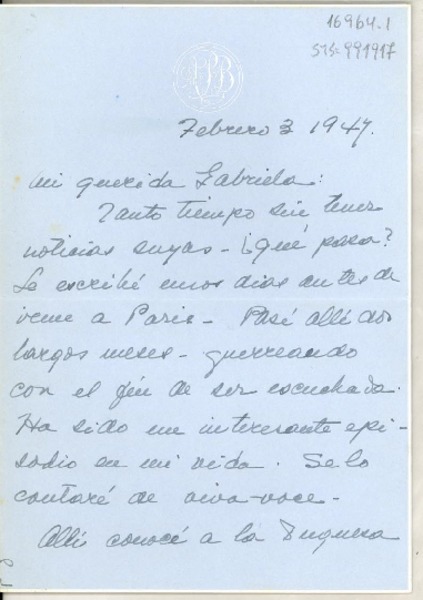 16964.1
SIS=991917
Febrero 3 1947.
Mi querida Gabriela:
Tanto tiempo sin tener
noticias suyas - ¿qué pasa?
Le escribí unos dias antes de
irme a Paris - Pasé allí dos
largos meses - guerreando
con el fin de ser escuchada.
Ha sido un interesante epi-
sodio en mi vida. Se lo
contaré de viva-voce -
Allí conocí a la Duquesa